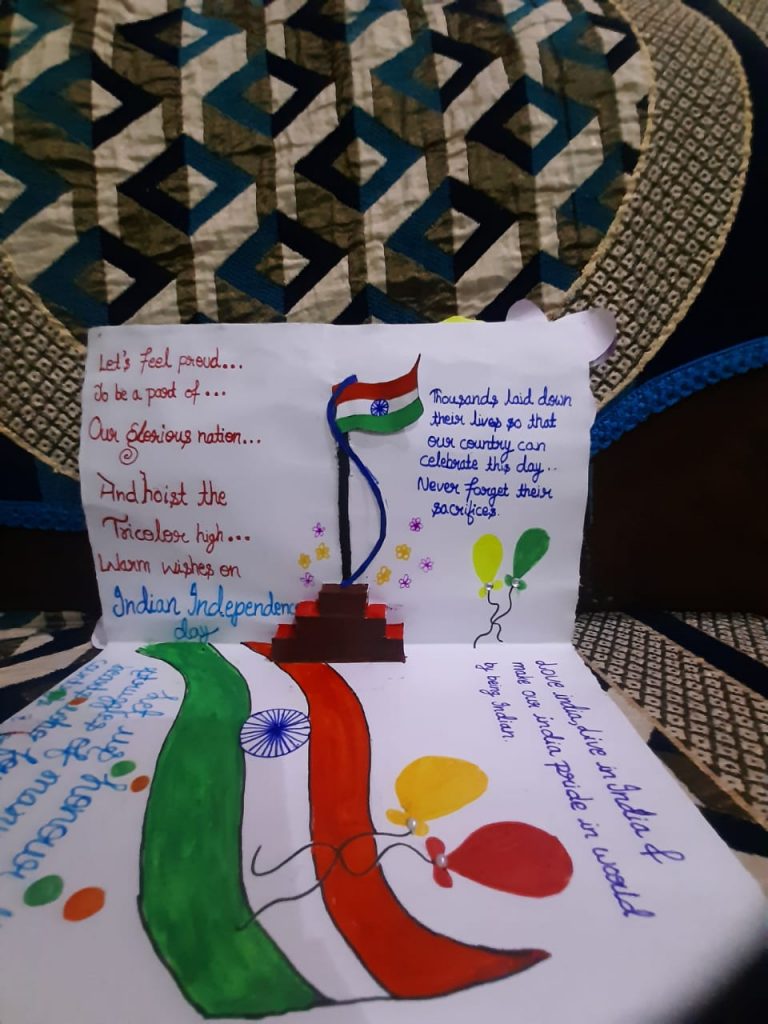 Let's feel proud...
To be a part of...
Our glorious nation...
And hoist the
Tricolor high...
Warm wishes on
Indian Independenc
day
Thousands laid down
their lives so that
our country can
celebrate this day...
Never forget their
sacrifices.
Love india, Live in India &
make our india pride in world
by being Indian.
let us honour
struggles of many
who